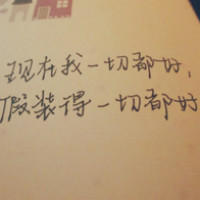 现在我一切都好，
假装得一切都好